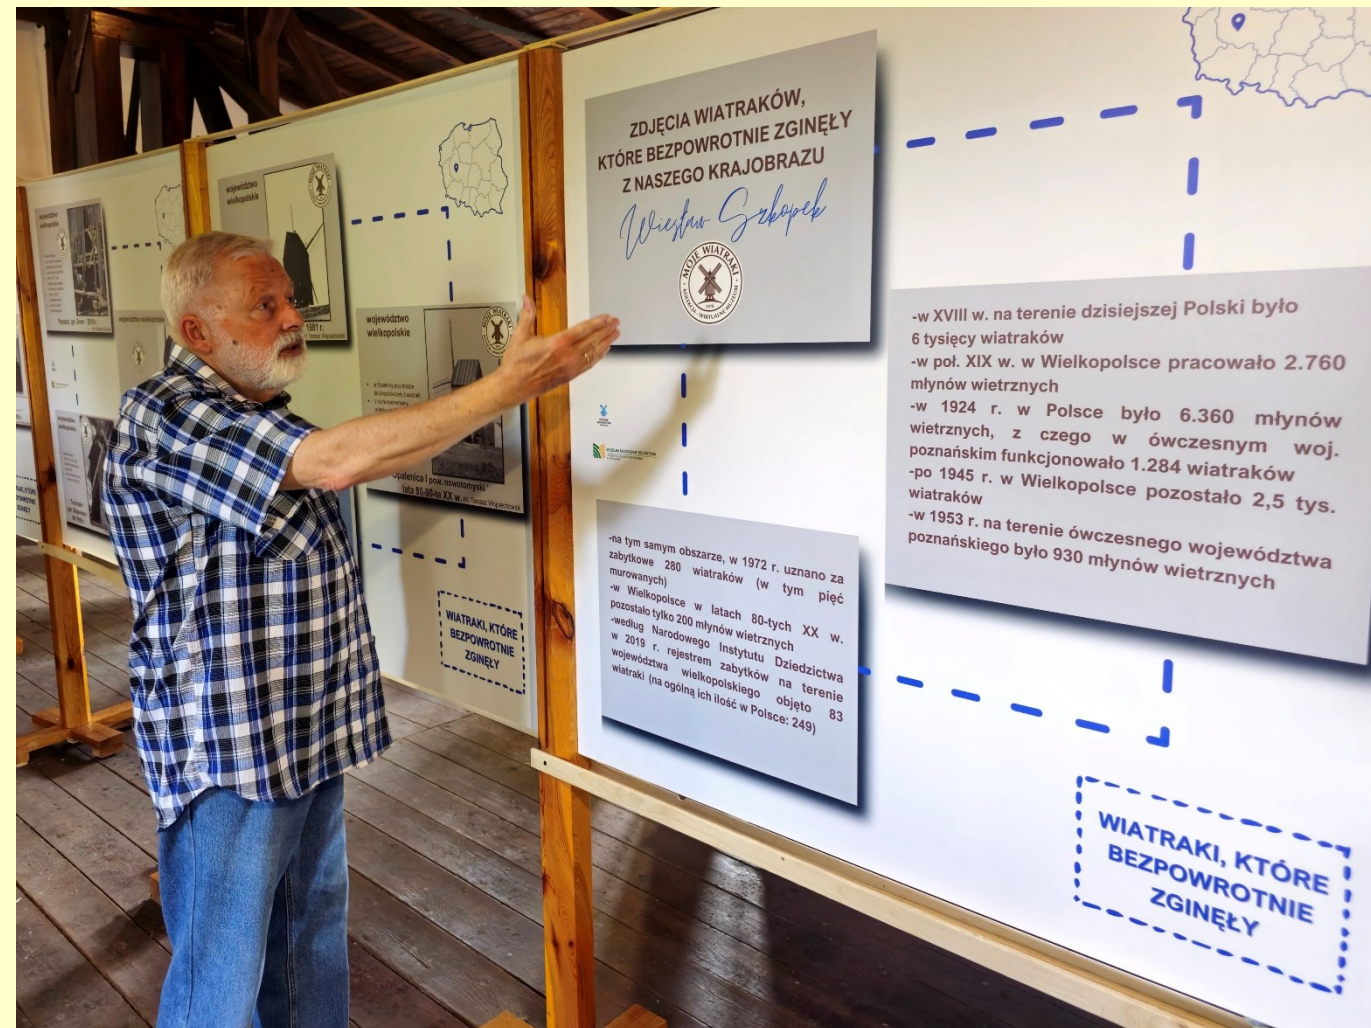 ZDJĘCIA WIATRAKÓW,
KTÓRE BEZPOWROTNIE ZGINĘŁY
Z NASZEGO KRAJOBRAZU
Wiesław Szkopek
MOJE WIATRAKI
-w XVIII w. na terenie dzisiejszej Polski było
6 tysięcy wiatraków
-w poł. XIX w. w Wielkopolsce pracowało 2.760
młynów wietrznych
-w 1924 r. w Polsce było 6.360 młynów
wietrznych, z czego w ówczesnym woj.
poznańskim funkcjonowało 1.284 wiatraków
-po 1945 r. w Wielkopolsce pozostało 2,5 tys.
wiatraków
-w 1953 r. na terenie ówczesnego województwa
poznańskiego było 930 młynów wietrznych
-na tym samym obszarze, w 1972 r. uznano za
zabytkowe 280 wiatraków (w tym pięć
murowanych)
-w Wielkopolsce w latach 80-tych XX w.
pozostało tylko 200 młynów wietrznych
-według Narodowego Instytutu Dziedzictwa
w 2019 r. rejestrem zabytków na terenie
województwa wielkopolskiego objęto 83
wiatraki (na ogólną ich ilość w Polsce: 249)
WIATRAKI, KTÓRE
BEZPOWROTNIE
ZGINĘŁY
województwo
wielkopolskie
1981 r.
województwo
wielkopolskie
MOJE WIATRAKI
Opalenica I pow. nowotomyski
lata 80-90-te XX w.
WIATRAKI, KTÓRE
BEZPOWROTNIE
ZGINĘŁY
województwo
wielkopolskie